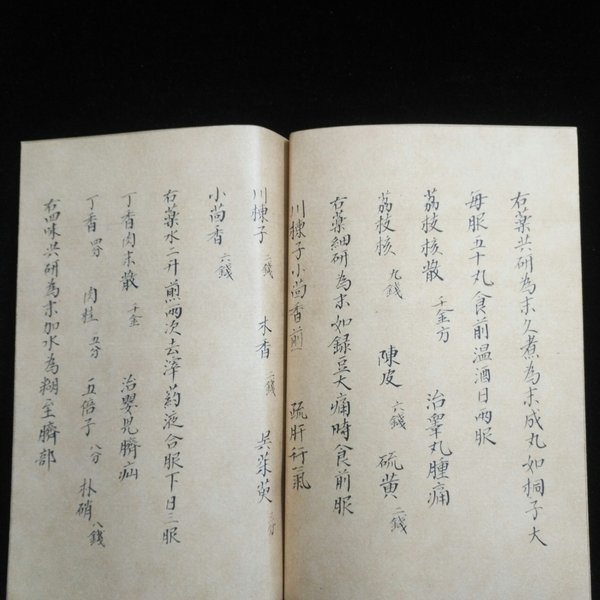 右藥共研為末久煮為末成丸如桐子大
每服五十丸食前温酒日两服
荔枝核散 千金方 治睾丸腫痛
荔枝核 九錢 陳皮 六錢 硫黄 二錢
右藥細研為末如録豆大痛時食前服
川楝子小茴香煎 疏肝行氣
川楝子 二錢 木香 二錢 吴茱萸
小茴香 六錢
右藥水二升煎两次去滓药液合服下日三服
丁香肉末散 千金 治嬰児臍疝
丁香 四分 肉桂 五分 五倍子 八分 朴硝 八錢
右四味共研為末加水為糊至臍部